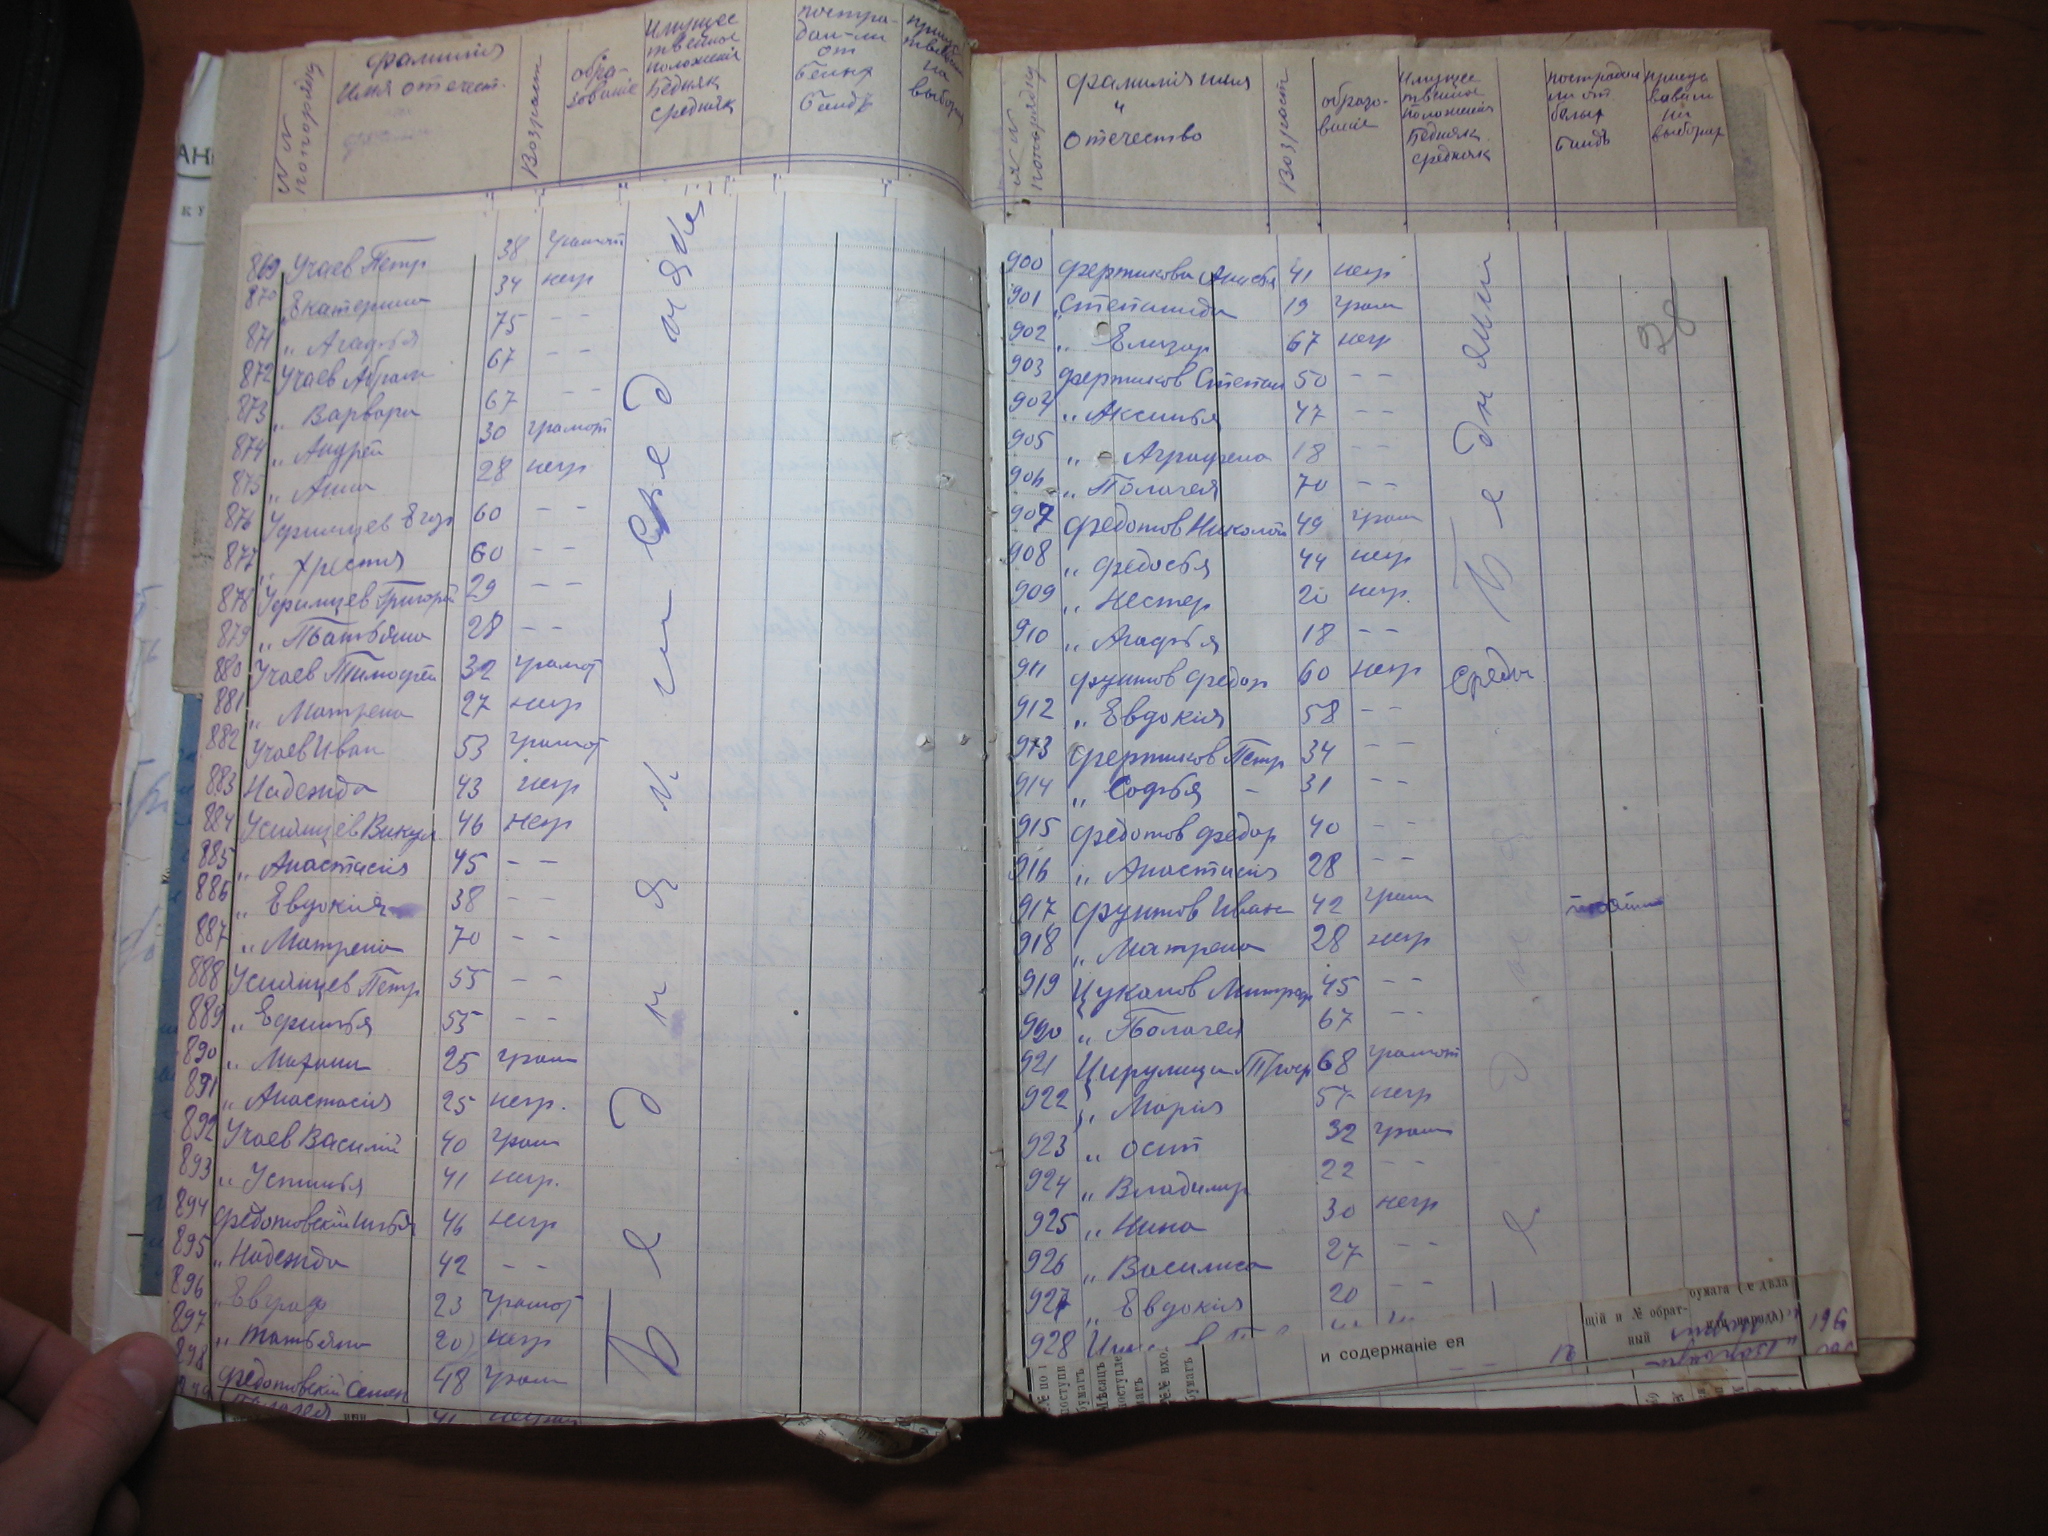 NN по порядку
Фамилия
Имя отечест.
Возраст
обра-
зование
Имущес
твенное
положения
Бедняк
средняк
постра-
дал-ли
от
белых
бандъ
на
выборах
869 Учаев Петр 38 грамот
870 Екатерина 34 негр
871 " Агафья 75 - -
872 Учаев Абрам 67 - -
873 " Варвара 67 - -
874 " Андрей 30 грамот
875 " Анна 28 негр
876 Уфимцев Егор 60 - -
877 " Хрестия 60 - -
878 Уфимцев Григорей 29 - -
879 " Татьяна 28 - -
880 Учаев Тимофей 32 грамот
881 " Матрена 27 негр
882 Учаев Иван 53 грамот
883 Надежда 43 негр
884 Усиянцев Викул 46 негр
885 " Анастасия 45 - -
886 " Евдокия 38 - -
887 " Матрена 70 - -
888 Усиянцев Петр 55 - -
889 " Ефимья 55 - -
890 25 грам
891 " Анастасия 25 негр.
892 Учаев Василий 40 грам
893 " Устинья 41 негр.
894 Федотовский Илья 46 негр
895 " Надежда 42 - -
896 " Евграф 23 грамот
897 " Татьяна 20 негр
898 Федотовский Семен 48 грам
Пелагея 41 неграм
Бедняки
Середняки
NN по порядку
Фамилия имя
и
Отечество
Возраст
образо-
вание
Имущес
твенное
положения
Бедняк
средняк
пострадал
ли от
белых
бандъ
присуц
вовали
на
выборах
28
900 Фертикова Анисья 41 негр
901 " Степанида 19 грам
902 " Елизар 67 негр
903 Фертиков Степан 50 - -
904 " Аксинья 47 - -
905 " Аграфена 18 - -
906 " Полагея 70 - -
907 Федотов Николай 49 грам
908 " Федосья 44 негр
909 " Нестер 20 негр.
910 " Агафья 18 - -
911 Фунтов Федор 60 негр Средн
912 " Евдокия 58 - -
913 Фертиков Петр 34 - -
914 " Софья - 31 - -
915 Федотов Федор 40 - -
916 " Анастасия 28 - -
917 Фунтов Иван 42 грам
918 " Матрена 28 негр
919 Цуканов Митроф 45 - -
920 " Полагея 67 - -
921 68 грамот
922 " Мария 57 негр
923 " Осип 32 грам
924 " Владимир 22 - -
925 " Нина 30 негр
926 " Василиса 27 - -
927 " Евдокия 20 - -
928
и содержаніе ея
щій и № обрат-
ный
бумага (